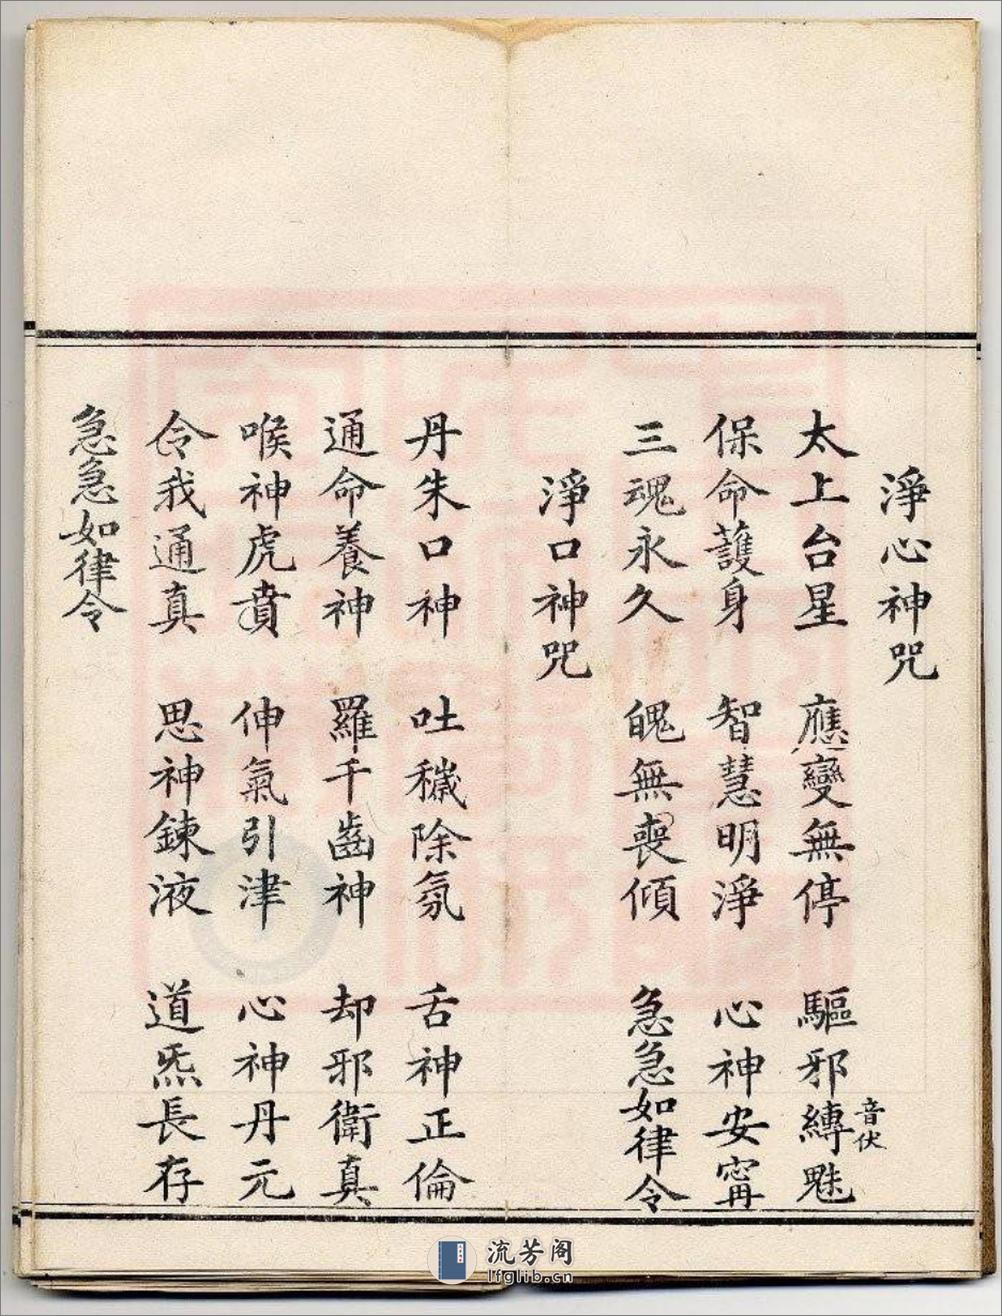 淨心神咒
太上台星 應變無停 驅邪縛魅
音伏
保命護身 智慧明淨 心神安甯
三魂永久 魄無喪傾 急急如律令
淨口神咒
丹朱口神 吐穢除氛 舌神正倫
通命養神 羅千齒神 却邪衛真
喉神虎賁 伸氣引津 心神丹元
令我通真 思神鍊液 道炁長存
急急如律令
流芳阁
lfglib.cn